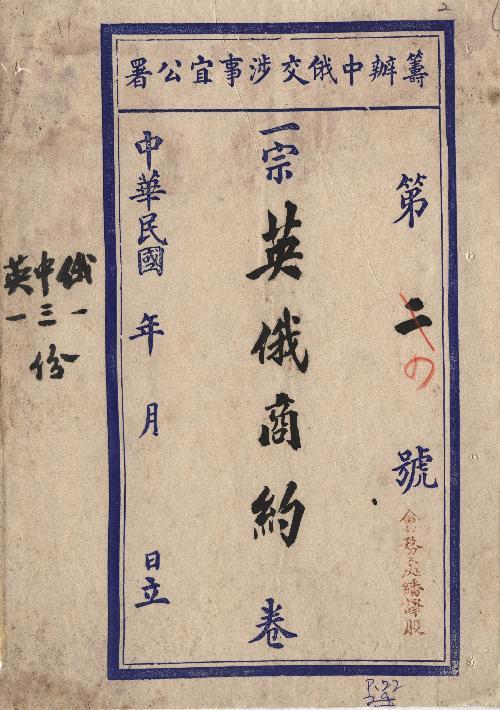 籌辦中俄交涉事宜公署
第二號
一宗英俄商約卷
中華民國 年 月 日立
會務處繙譯股
俄一
中三份
英一
P. 22
2